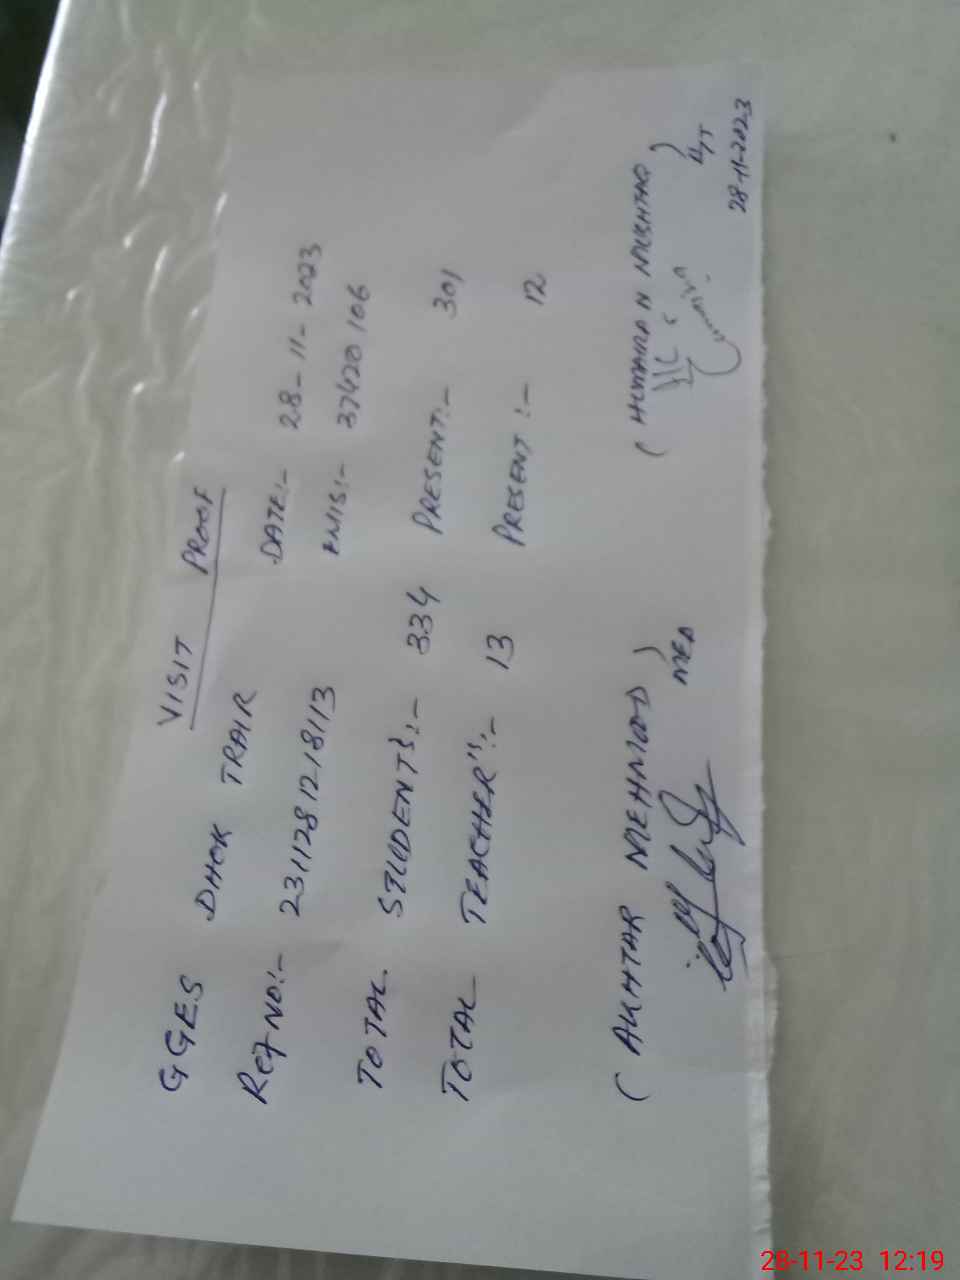 VISIT PROOF
GGES DHOK TRAIR DATE:- 28-11-2023
Ref NO:- 2311281218113 EMIS:- 37420106
TOTAL STUDENTS:- 334 PRESENT:- 301
TOTAL TEACHER":- 13 PRESENT:- 12
(AKHTAR MEHMOOD) (HUMAIRA N MUSHTAQ)
MEA
28-11-2023
28-11-23 12:19